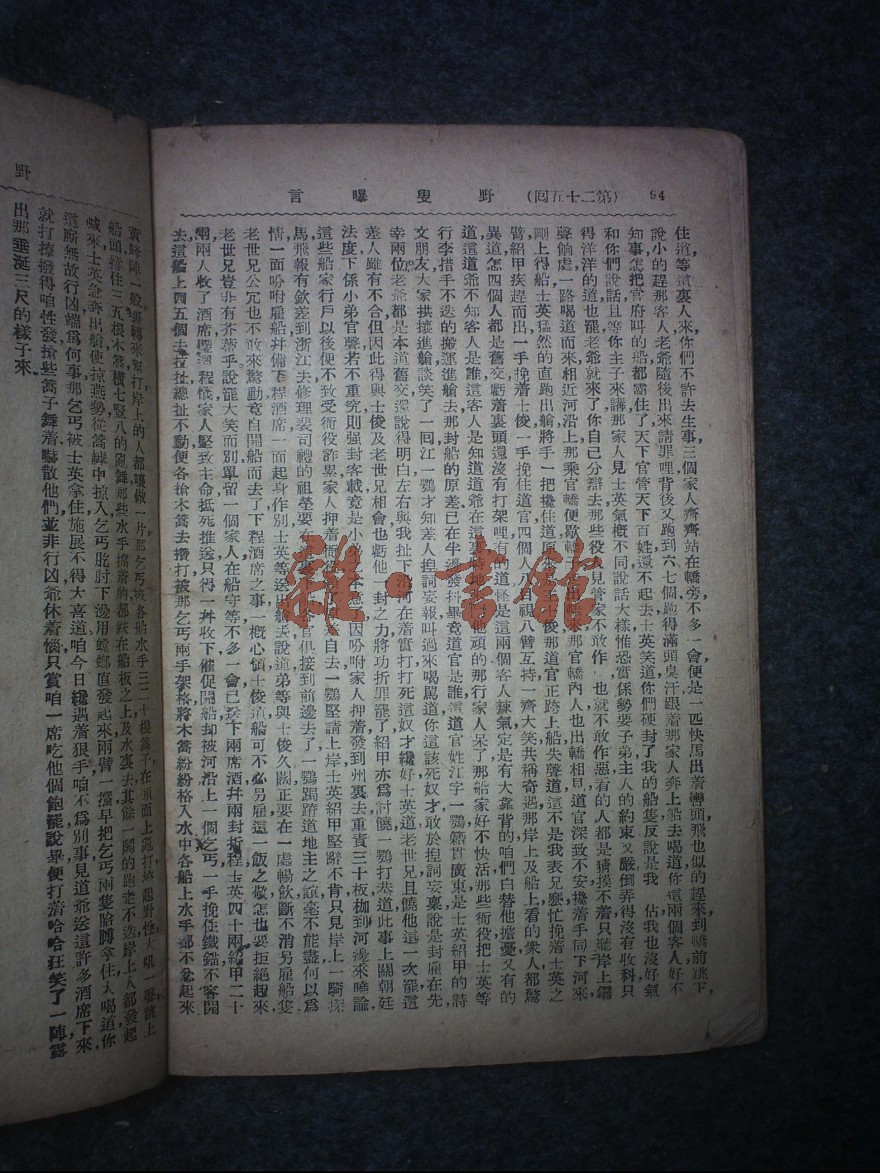 94 (第二十五回) 野叟曝言
住道等這裏人來你們不許去生事三個家人齊齊站在轎旁不多一會便是一匹快馬出着轡頭飛也似的趕來到轎前跳下
說小的趕那客人老爺隨後出來請罪哩背後又跑到六七個跑得滿頭臭汗跟着那家人奔上船去喝道你這兩個客人好不
知事怎把官府叫的船都霸住了天下官管天下百姓還不起去士英笑道你們硬封了我的船隻反說是我 佔我也沒好氣
和你們說話且等你主子來講那家人見士英氣概不同說話大樣惟恐實係勢要子弟主人的約束又嚴倒弄得沒有收科只
得洋洋的道也罷老爺就來了你自己分辯去那些役 見管家不敢作 也就不敢作惡看的人都是猜摸不着只聽岸上鑼
聲倘處一路喝道而來相近河沿上那乘官轎便歇轎 那官轎內人也出轎相見道官深致不安攙着手同下河來
剛上得船士英猛然的直跑出艙將手一把攙住道原來 俊那道官正跨上船失聲道這不是我表兄麼忙挽着士英之
臂紹甲疾趕而出一手挽着士俊一手挽住道官四個人八目 視八臂互持一齊大笑共稱奇遇那岸上及船上看的衆人都驚
異道怎四個人都是舊交虧着裏頭還沒有打架哩有的道怪 是這兩個客人鍊氣定是有大靠背的咱們白替他擔憂又有的
道這道爺不知客人是誰這客人是知道道爺在這裏 他頑的那行家人呆了那船家好不快活那些衙役把士英等
行李措手不迭的搬運進艙去那封船的原差已在半邊發抖畢竟道官是誰 道官姓江字一鶚籍貫廣東是士英紹甲的詩
文朋友大家拱攘進艙談笑了一囘江一鶚才知差人揑詞妄報叫過來喝罵道你這該死奴才敢於揑詞妄稟說是封雇在先
幸兩位老爺都是本道舊交還說得明白左右與我扯下 河在着實打打死這奴才纔好士英道老世兄且饒他這一次罷這
差人雖有不合但因此得與士俊及老世兄相會也虧他一封之力將功折罪罷了紹甲亦爲討饒一鶚打巷道此事上關朝廷
法度下係小弟官聲若不重究則强封客載竟是小弟 因吩咐家人押着發到州裏去重責三十板枷到河邊來曉諭
這些船家行戶以後便不致受衙役詐累家人押着衙 自去一鶚堅請上岸士英紹甲堅辭不肯只見岸上一騎探
馬飛報有欽差到浙江去修理裴司禮的祖塋要在 官俱接到前邊去了一鶚跼蹐道地主之誼毫不能盡何以爲
情一面吩咐雇船幷備下程酒席一面起身作別士英等送 說道弟等與士俊久闊正要在一處暢飲斷不消另雇船隻
老世兄公冗也不敢來驚動竟自開船而去了下程酒席之事一概心領士俊道船可不必另雇還一飯之敬怎也要拒絕起來
老世兄豈非有芥蒂乎說罷大笑而別單留一個家人在船守等不多一會已送下兩席酒幷兩封折程士英四十兩紹甲二十
兩兩人收了酒席璧還程儀家人堅致主命抵死推送只得一幷收下催促開船却被河沿上一個乞丐一手挽住鐵錨不容開
去這船上四五個去拉扯總扯不動便各搶木篙去撥打被那乞丐兩手架格將木篙紛紛格入水中各船上水手都不忿起來
野
黃蜂陣一般裹轉來幫打岸上的人都嚷做一片那乞丐被各船水手三二十根篙子在頭面上亂打
船頭撐住三五根木篙橫七豎八的亂舞那些水手擒着的都跌在船板之上及水裏去其餘一闞的跑老不迭岸上人都發起
喊來士英急奔出艙使掠燕勢從篙縫中掠入乞丐胳肘下邊用螳螂直發起來兩臂一攩早把乞丐兩隻胳膊拿住大喝道你
這厮無故行凶端爲何事那乞丐被士英拿住施展不得大喜道咱今日纔遇着狠手咱不爲別事見道爺送這許多酒席下來
就打撩撥得咱性發搶些篙子舞着嚇散他們並非行凶爺休着惱只賞咱一席吃他個飽罷說畢便打着哈哈狂笑了一陣露
出那垂涎三尺的樣子來
雜·書館